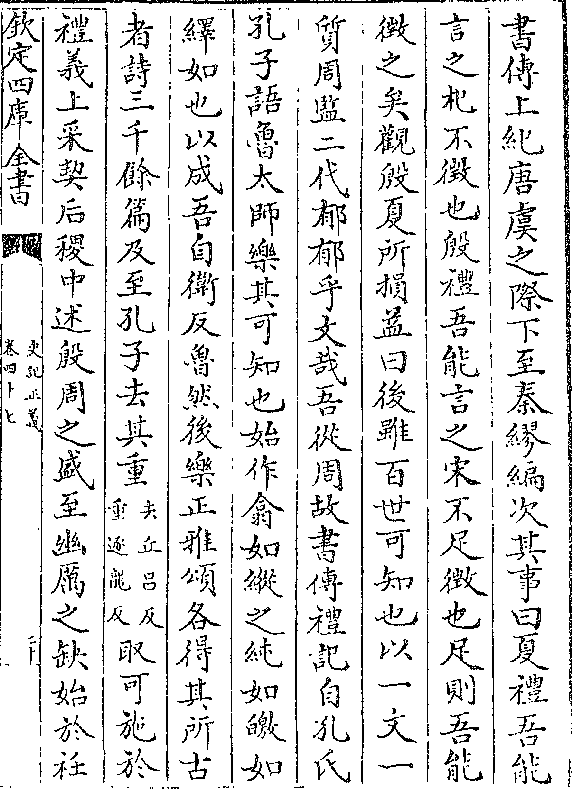 書傳上紀唐虞之際下至秦繆編次其事曰夏禮吾能
言之杞不徵也殷禮吾能言之宋不足徵也足則吾能
徵之矣觀殷夏所損益曰後雖百世可知也以一文一
質周監二代郁郁乎文哉吾從周故書傳禮記自孔氏
孔子語魯太師樂其可知也始作翕如縱之純如皦如
繹如也以成吾自衛反魯然後樂正雅頌各得其所古
者詩三千餘篇及至孔子去其重去丘呂反重逐龍反取可施於
禮義上采契后稷中述殷周之盛至幽厲之缺始於衽
欽定四庫全書
史記正義
卷四十七
二十